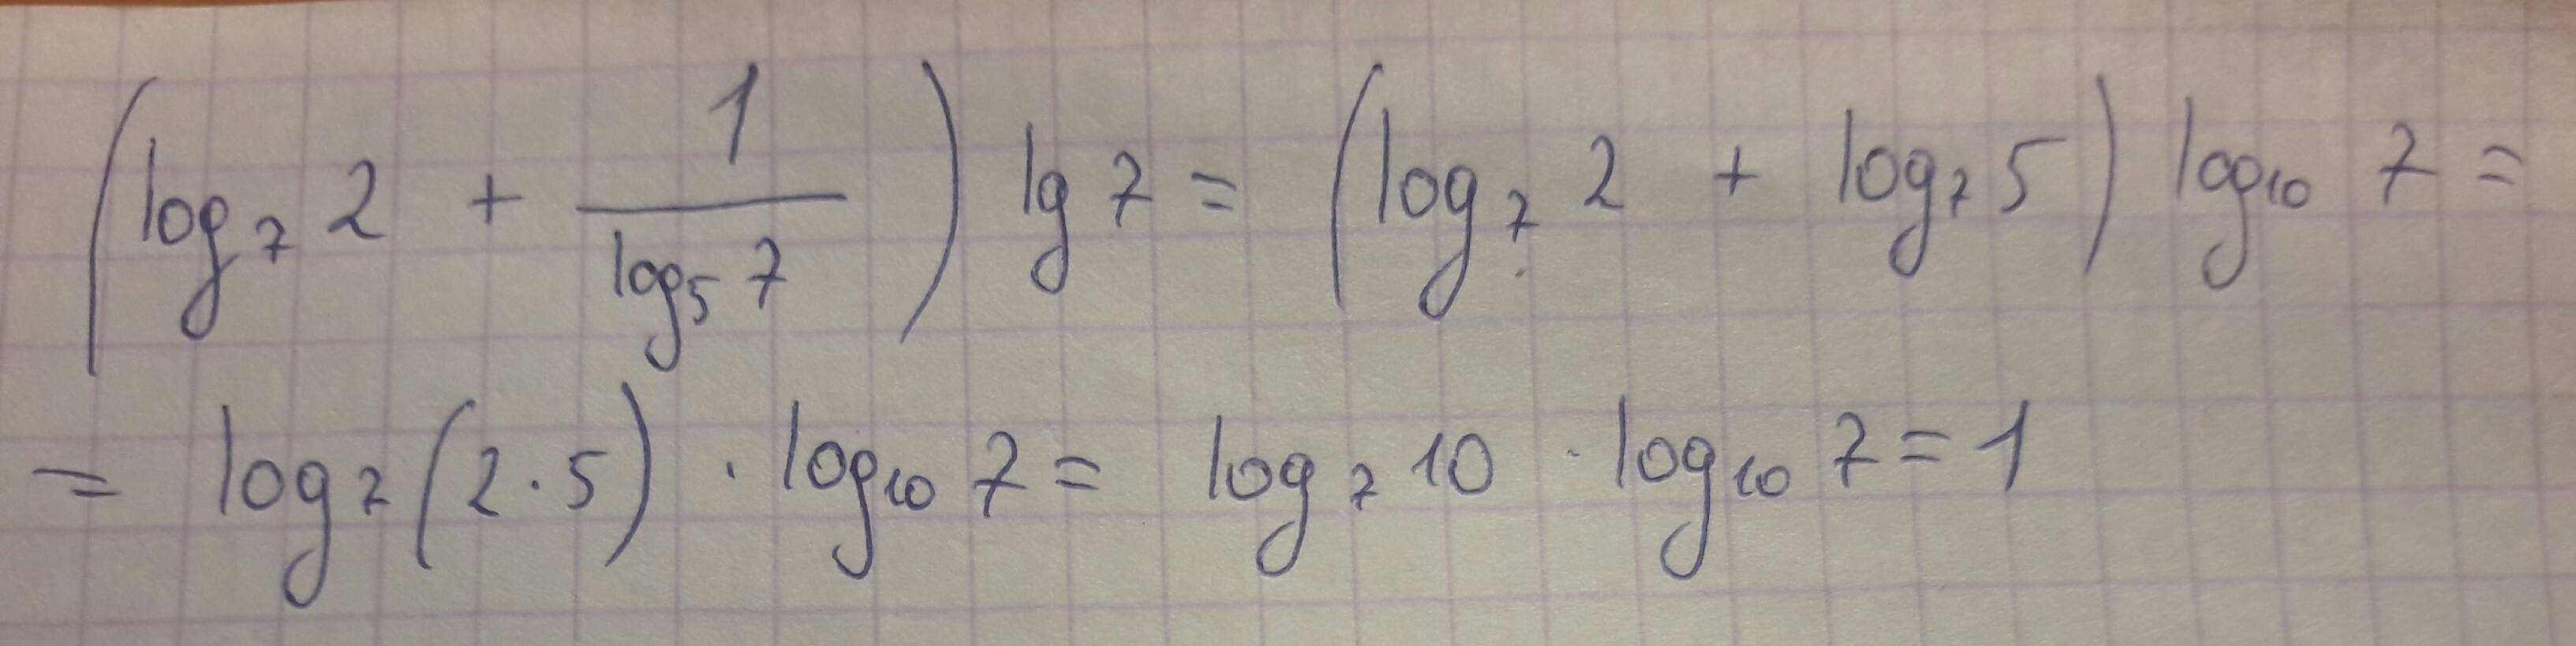 (log₇ 2 + 1/(log₅ 7)) lg 7 = (log₇ 2 + log₇ 5) log₁₀ 7 =
= log₇ (2 · 5) · log₁₀ 7 = log₇ 10 · log₁₀ 7 = 1